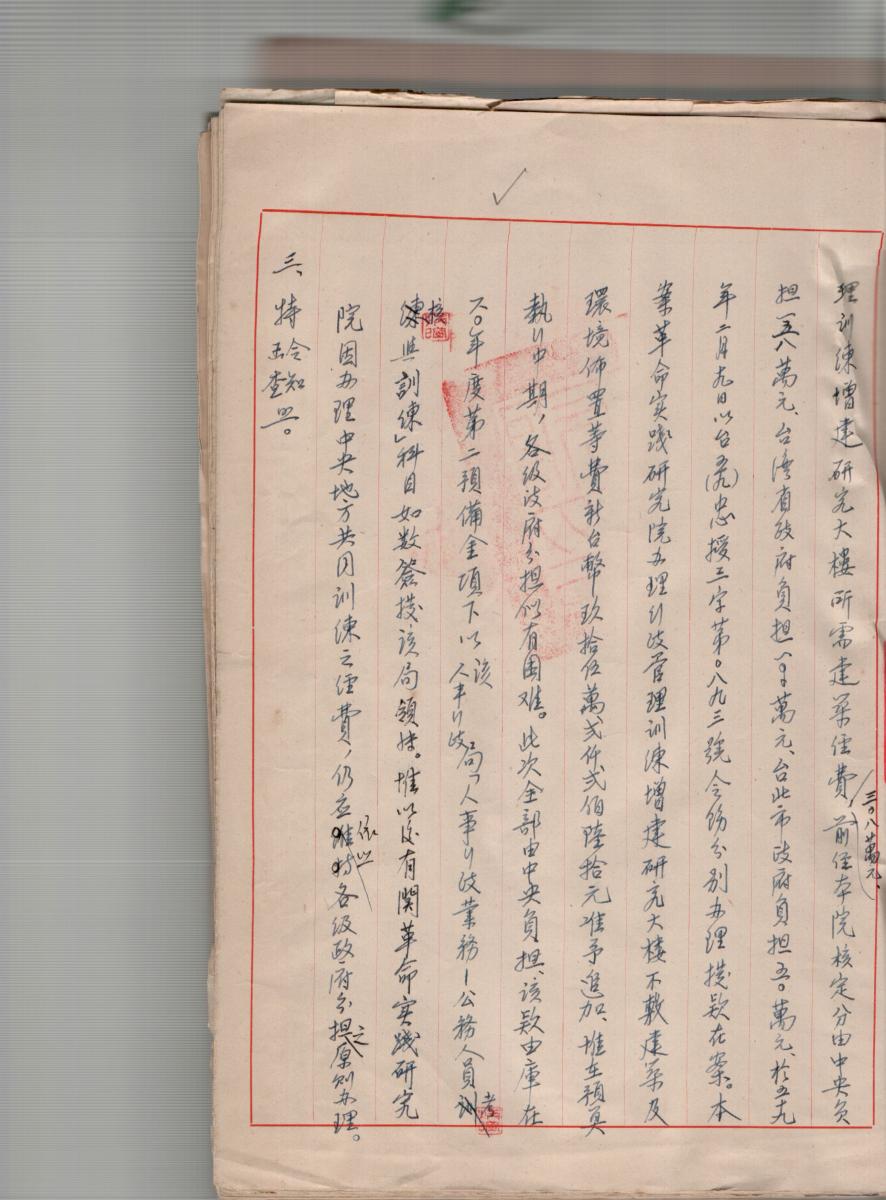 理訓練增建研究大樓所需建築经費三〇八萬元、前经本院核定分由中央負
担一五八萬元、台湾省政府負担一〇〇萬元、台北市政府負担五〇萬元、於五九
年二月九日以台(五九)忠授三字第〇八九三號令飭分别办理撥款在案。本
案革命实践研究院办理行政管理訓練增建研究大樓不敷建築及
環境佈置等費新台幣玖拾伍萬貳仟貳佰陸拾元准予追加、惟在預算
執行中期，各級政府分担似有困难。此次全部由中央負担、該款由庫在
六〇年度第二預備金項下以該人事行政局「人事行政業務—公務人員考
核與訓練」科目如数簽撥該局領轉。惟以後有関革命实践研究
院因办理中央地方共同訓練之经費，仍应依照各級政府分担之原則办理。
三、特令知
查照。